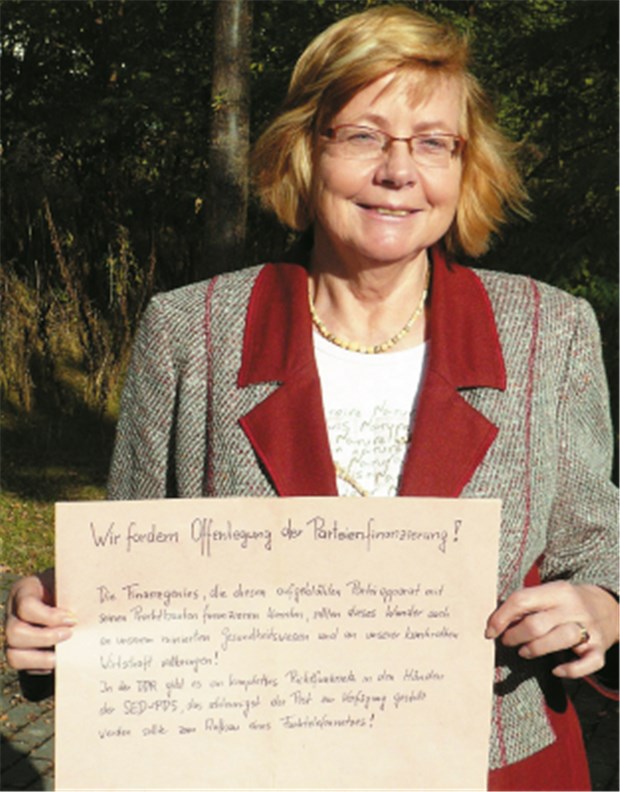 Wir fordern Offenlegung der Parteienfinanzierung!
Die Finanzgenies, die diesen aufgeblähten Parteiapparat mit
seinen Prachtbauten finanzieren konnten, sollten dieses Wunder auch
an unserem ruinierten Gesundheitswesen und an unserer bankrotten
Wirtschaft vollbringen!
In der DDR gibt es ein komplettes Richtfunknetz in den Händen
der SED-PDS, das schleunigst der Post zur Verfügung gestellt
werden sollte zum Aufbau eines Funktelefonnetzes!